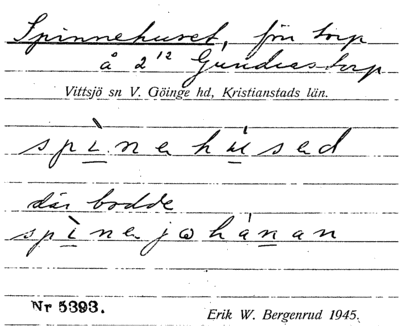 Spinnehuset, förr torp
å 2¹² Gundrastorp
Vittsjö sn V. Göinge hd, Kristianstads län.
spìnəhúsəd
där bodde
spìnəjωhánan
Nr 5393.
Erik W. Bergenrud 1945.